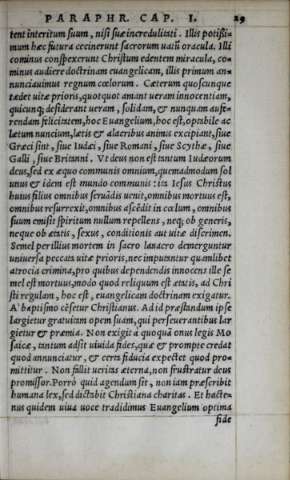 PARAPHR. CAP. I. 29
tent interitum suum, nisi suæ incredulitati. Illis potissi-
mum hæc futura cecinerunt sacrorum uatũ oracula. Illi
cominus conspexerunt Christum edentem miracula, co-
minus audiere doctrinam euangelicam, illis primum an-
nunciauimus regnum cœlorum. Cæterum quoscunque
tædet uitæ prioris, quotquot amant ueram innocentiam,
quicunq; desiderant ueram, solidam, & nunquam aufe-
rendam felicitatem, hoc Euangelium, hoc est, optabile ac
lætum nuncium, lætis & alacribus animis excipiant, siue
Græci sint, siue Iudæi, siue Romani, siue Scythæ, siue
Galli, siue Britanni. Vt deus non est tantum Iudæorum
deus, sed ex æquo communis omnium, quemadmodum sol
unus & idem est mundo communis: ita Iesus Christus
huius filius omnibus seruãdis uenit, omnibus mortuus est,
omnibus resurrexit, omnibus ascẽdit in cœlum, omnibus
suum emisit spiritum nullum repellens, neq; ob generis,
neque ob ætatis, sexus, conditionis aut uitæ discrimen.
Semel per illius mortem in sacro lauacro demerguntur
uniuersa peccata uitæ prioris, nec imputantur quamlibet
atrocia crimina, pro quibus dependendis innocens ille se
mel est mortuus, modo quod reliquum est ætatis, ad Chri
sti regulam, hoc est, euangelicam doctrinam exigatur.
A' baptismo cẽsetur Christianus. Ad id præstandum ipse
largietur gratuitam opem suam, qui perseuerantibus lar
gietur & præmia. Non exigit à quoquã onus legis Mo
saicæ, tantum adsit uiuida fides, quæ & prompte credat
quod annunciatur, & certa fiducia expectet quod pro-
mittitur. Non fallit ueritas æterna, non frustratur deus
promissor. Porrò quid agendum sit, non iam præscribit
humana lex, sed dictabit Christiana charitas. Et hacte-
nus quidem uiua uoce tradidimus Euangelium optima
fide